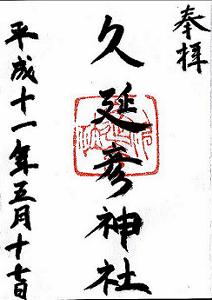 奉拝
久延彦神社
平成十一年五月十七日